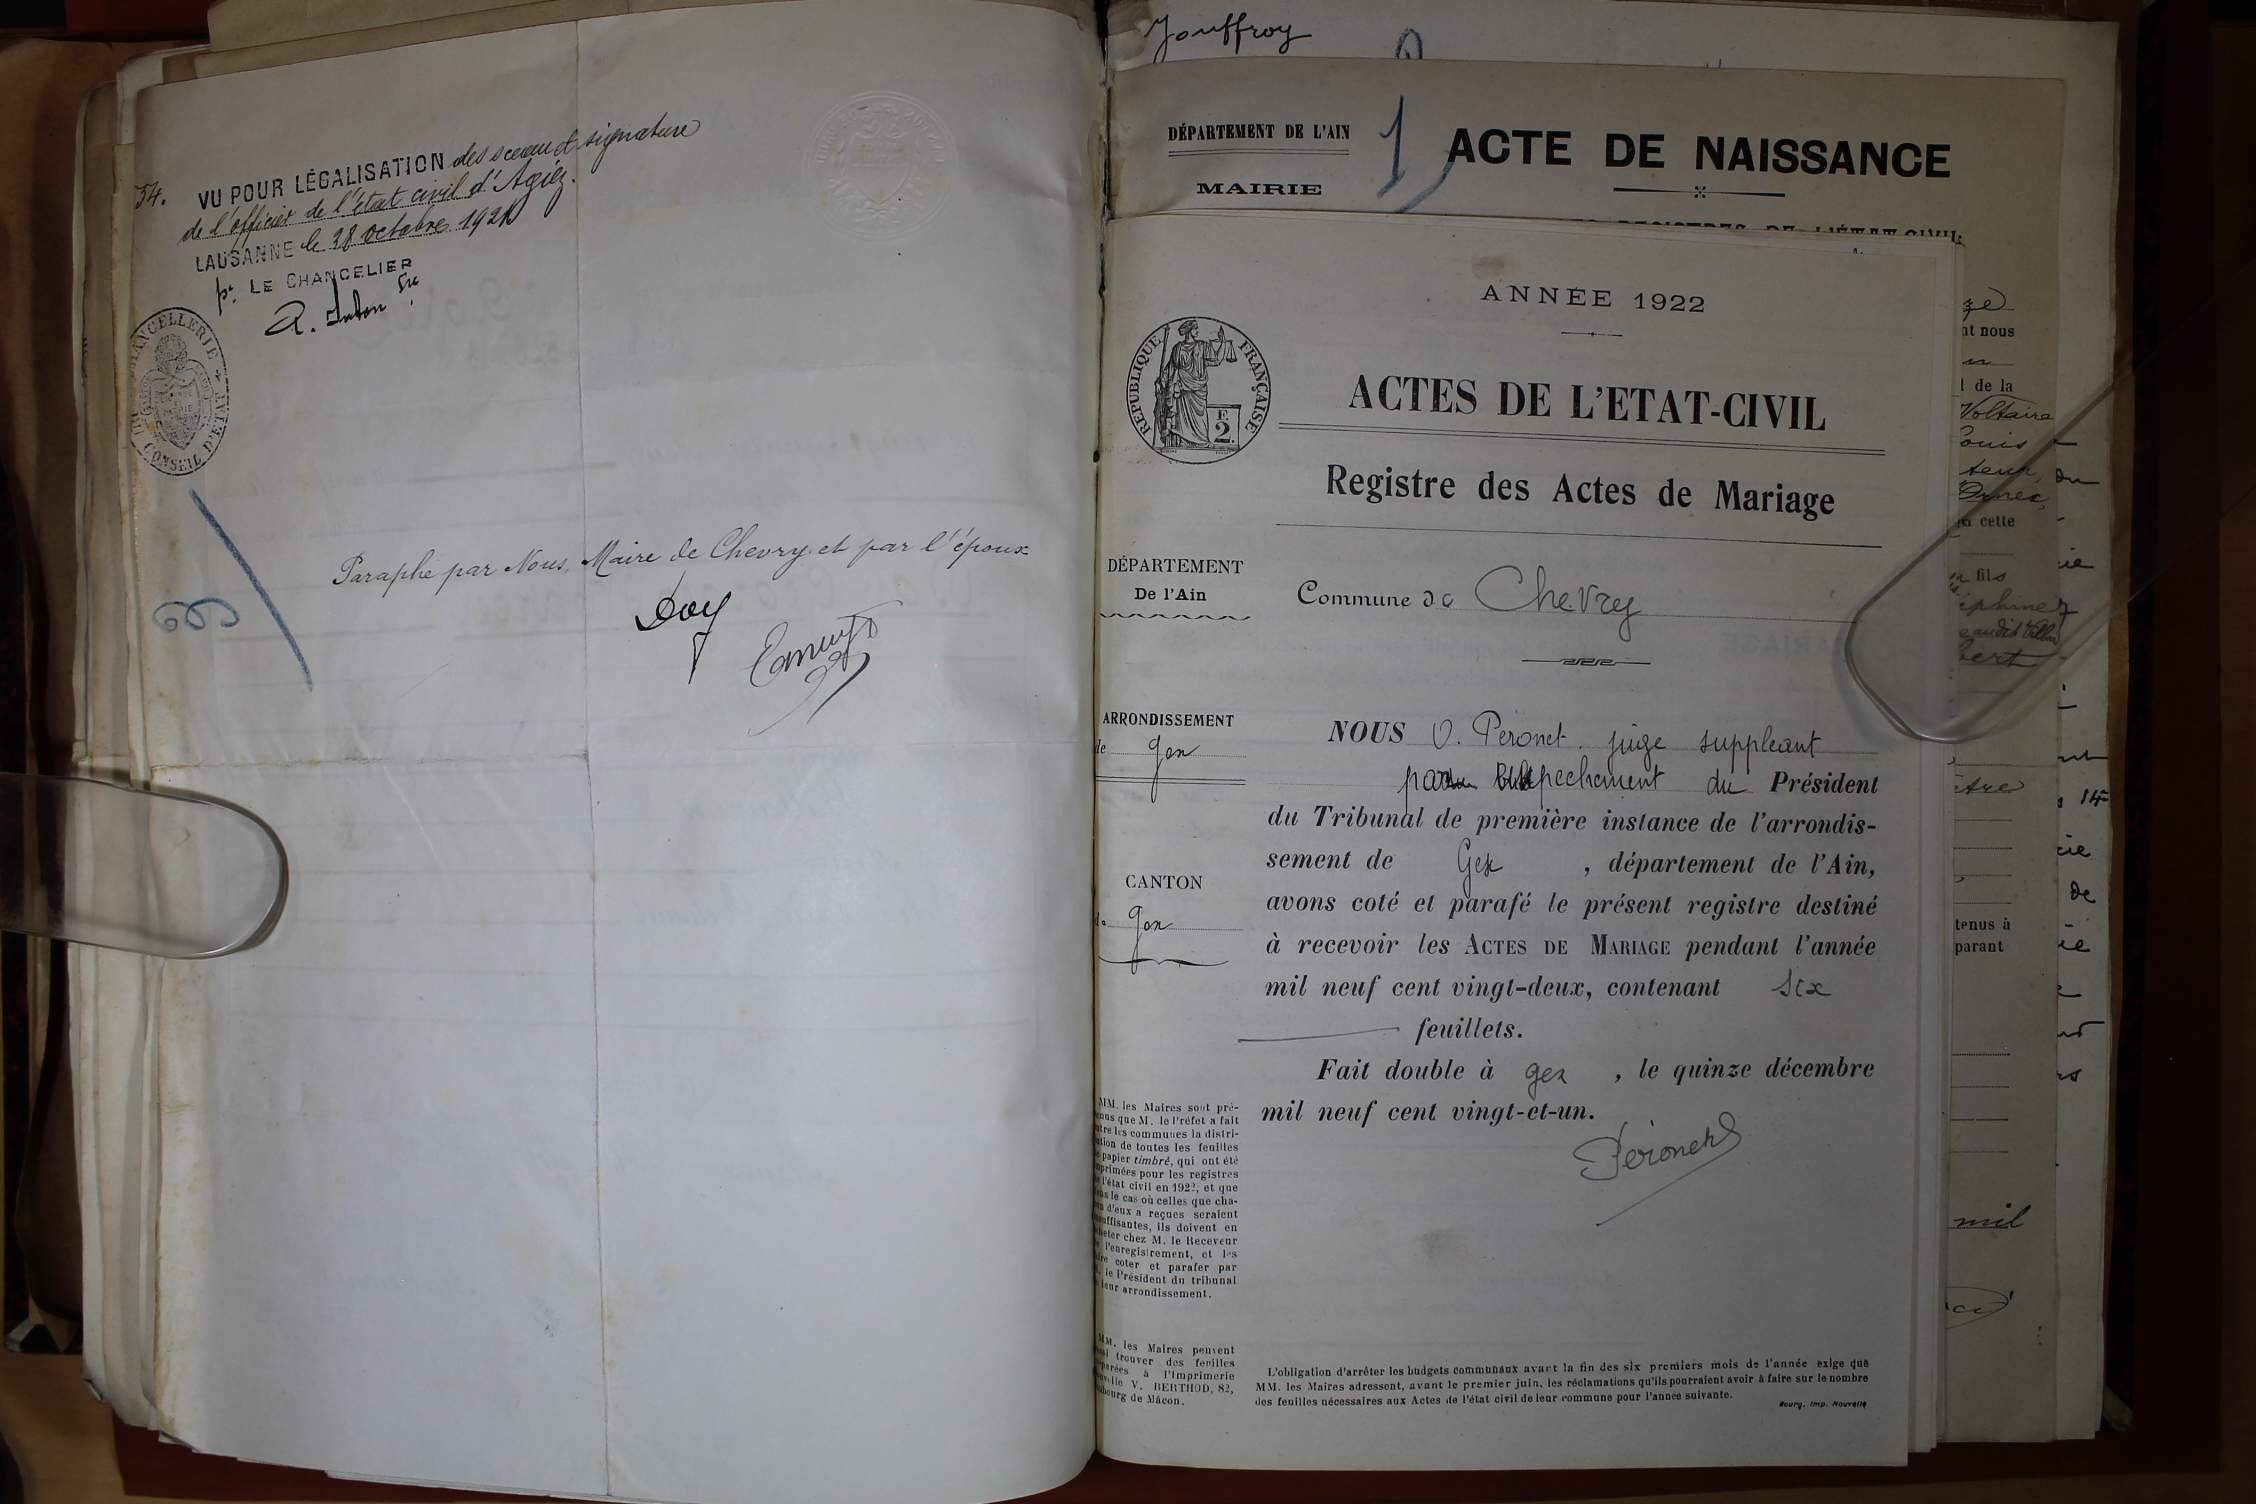 54. VU POUR LÉGALISATION des sceau et signature
de l'officier de l'état civil d'Agiez.
LAUSANNE le 28 octobre 1921
pr. LE CHANCELIER
A.
CHANCELLERIE
CONSEIL D'ETAT
Paraphé par Nous, Maire de Chevry et par l'époux
Jouffroy
DÉPARTEMENT DE L'AIN
MAIRIE
1
ACTE DE NAISSANCE
nt nous
de la
Voltaire
Louis
cette
fils
tenus à
parant
mil
ANNÉE 1922
RÉPUBLIQUE FRANÇAISE
F.
2.
ACTES DE L'ETAT-CIVIL
Registre des Actes de Mariage
DÉPARTEMENT
De l'Ain
Commune de Chevry
ARRONDISSEMENT
de Gex
CANTON
de Gex
NOUS O. Péronet juge suppléant
pechement du Président
du Tribunal de première instance de l'arrondis-
sement de Gex, département de l'Ain,
avons coté et parafé le présent registre destiné
à recevoir les ACTES DE MARIAGE pendant l'année
mil neuf cent vingt-deux, contenant six
feuillets.
Fait double à gex, le quinze décembre
mil neuf cent vingt-et-un.
Péronet
MM. les Maires sont pré-
enus que M. le Préfet a fait
tre les communes la distri-
ution de toutes les feuilles
papier timbré, qui ont été
primées pour les registres
l'état civil en 1922, et que
ns le cas où celles que cha-
n d'eux a reçues seraient
suffisantes, ils doivent en
heter chez M. le Receveur
l'enregistrement, et les
ire coter et parafer par
le Président du tribunal
leur arrondissement.
MM. les Maires peuvent
trouver des feuilles
parées à l'Imprimerie
velle V. BERTHOD, 82,
ubourg de Mâcon.
L'obligation d'arrêter les budgets communaux avant la fin des six premiers mois de l'année exige que
MM. les Maires adressent, avant le premier juin, les réclamations qu'ils pourraient avoir à faire sur le nombre
des feuilles nécessaires aux Actes de l'état civil de leur commune pour l'année suivante.
Bourg, Imp. Nouvelle